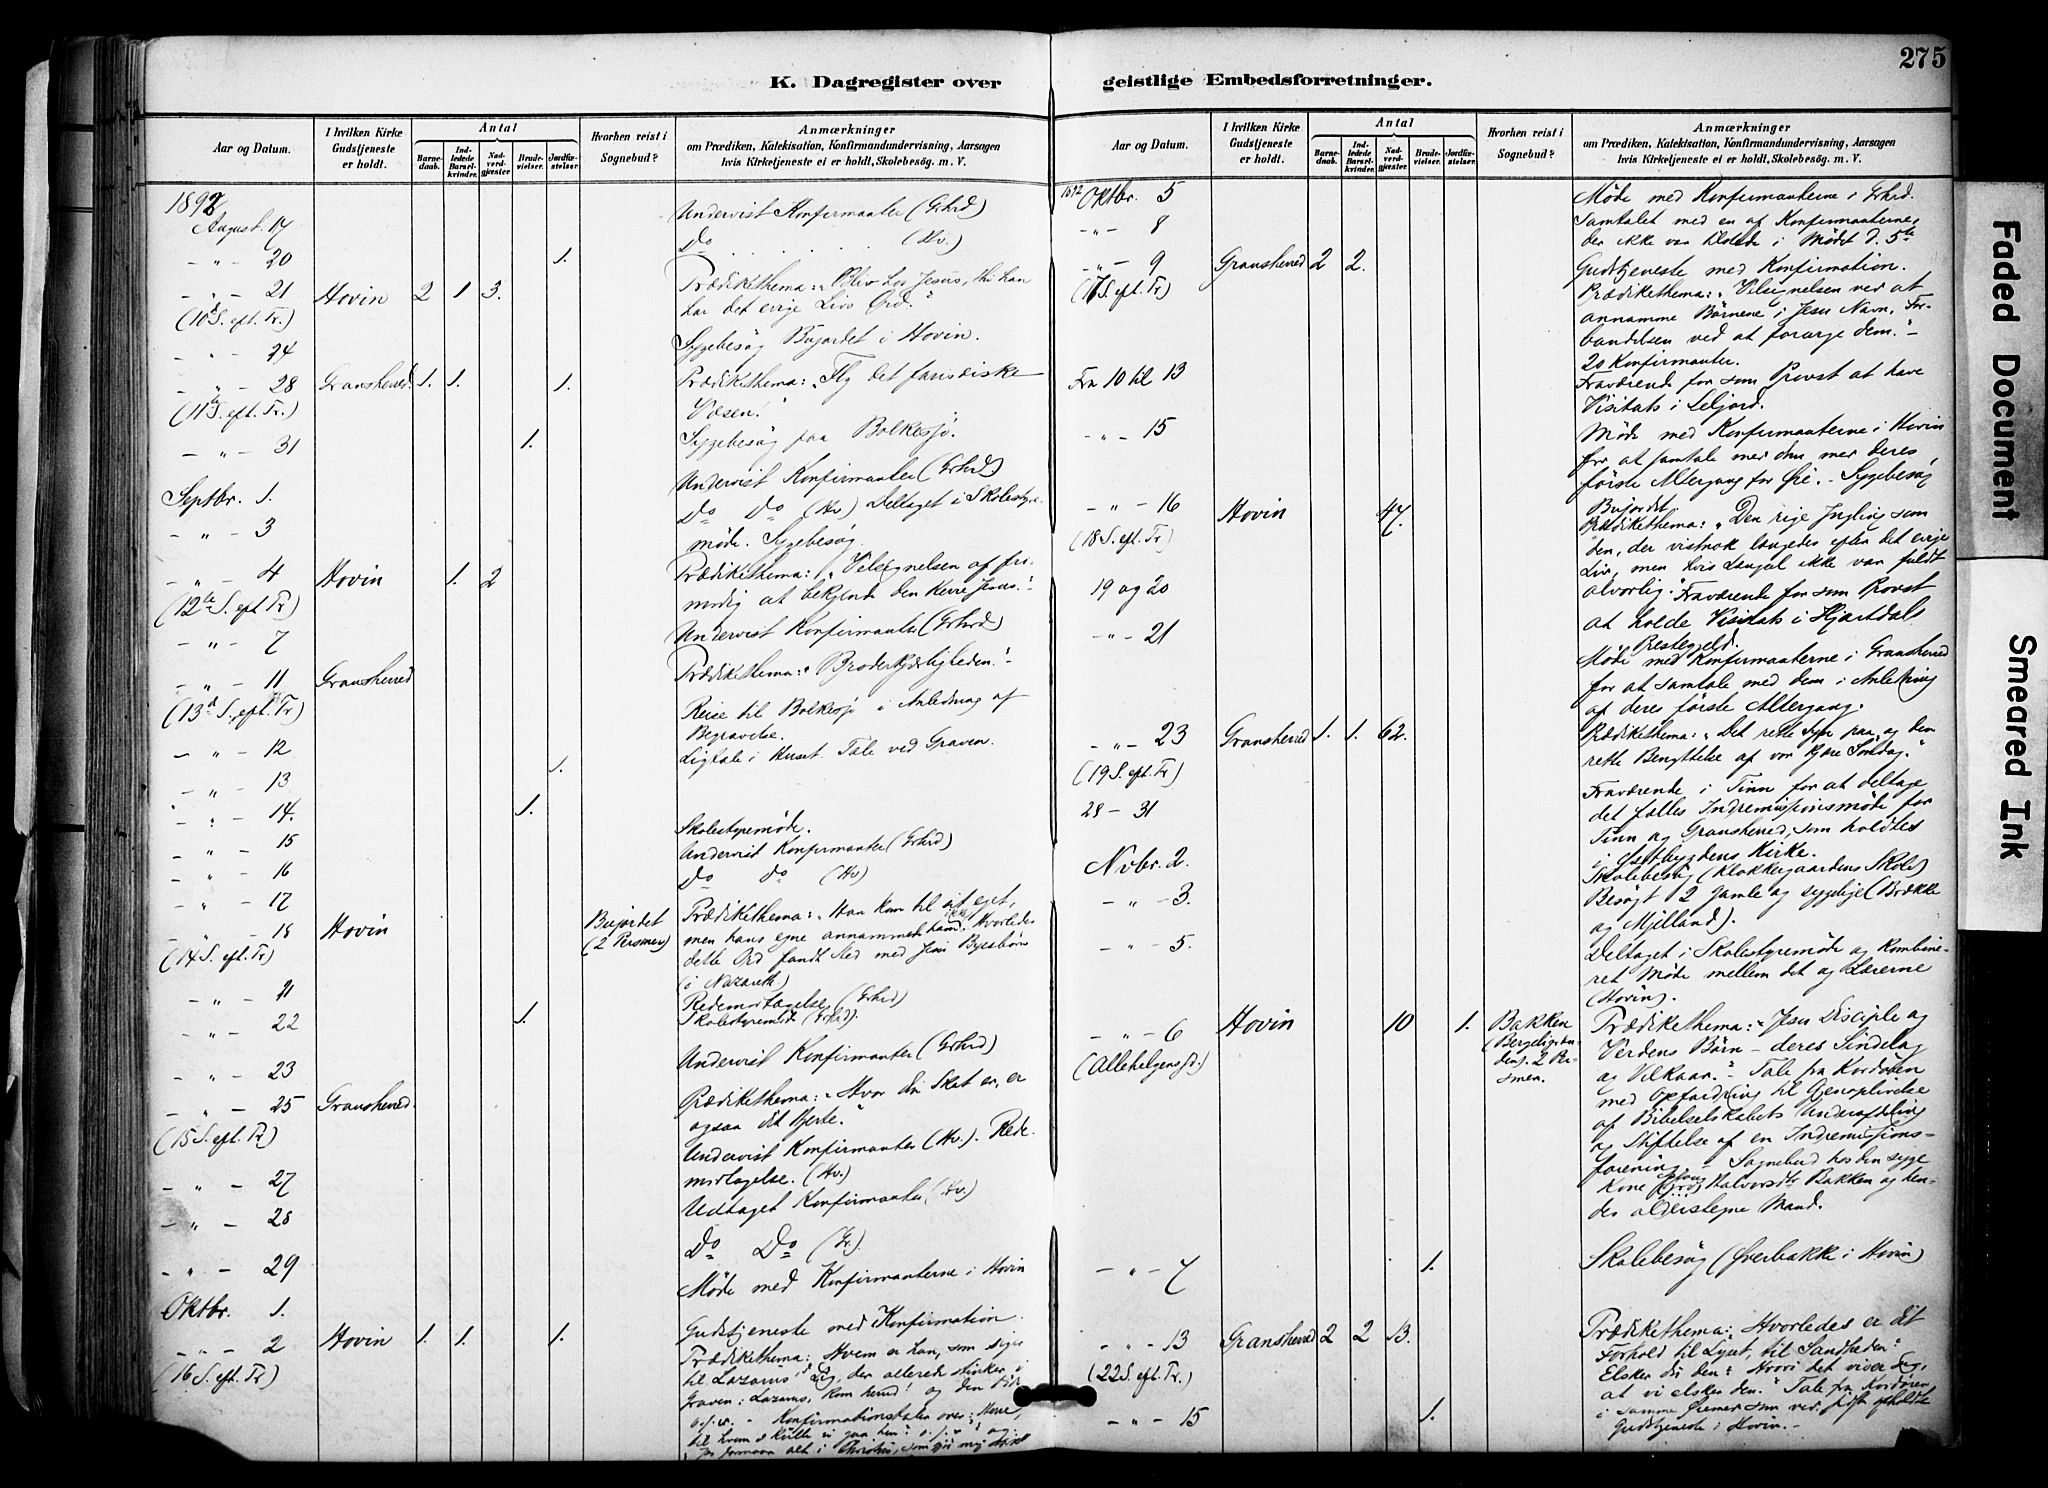 275
K. Dagregister over geistlige Embedsforretninger.
Aar og Datum.
I hvilken Kirke Gudstjeneste er holdt.
Antal
Barnedaab.
Indledede Barselkvinder.
Nadverdgjæster
Brudevielser.
Jordfæstelser.
Hvorhen reist i Sognebud?
Anmærkninger
om Prædiken, Katekisation, Konfirmandundervisning, Aarsagen
hvis Kirketjeneste ei er holdt, Skolebesøg. m. V.
1892
August. 17 Undervist Konfirmanter (Grhrd)
- " - 20 1. Do (Hv.)
- " - 21 Hovin 2 1 3. Prædikethema: "Bliv hos Jesus, thi han
(10 S. eft. Tr.) har det evige Livs Ord."
- " - 24 Sygebesøg Bujordet i Hovin.
- " - 28 Gransherred. 1. 1. 1. Prædikethema: "Fly det farisæiske
(11 S. eft. Tr.) Væsen."
- " - 31 1. Sygebesøg paa Bolkesjø.
Septbr. 1. Undervist Konfirmanter (Grhrd)
- " - 3 Do Do (Hv) Deltaget i Skolestyre-
møde. Sygebesøg.
- " - 4 Hovin 1. 2 Prædikethema: "Velsignelsen af fri-
(12te S. eft Tr) modig at bekjende den Herre Jesus."
- " - 7 Undervist Konfirmanter (Grhrd)
- " - 11 Gransherred Prædikethema: "Broderkjærligheden."
(13d S. eft. Tr) Reise til Bolkesjø i Anledning af
Begravelse.
- " - 12 Ligtale i Huset. Tale ved Graven.
- " - 13 1.
- " - 14. 1.
- " - 15 Skolestyremøde.
- " - 16 Undervist Konfirmanter (Grhrd)
- " - 17 Do do (Hv)
- " - 18 Hovin Bujordet (2 Personer) Prædikethema: "Han kom til sit eget,
(14 S. eft. Tr) men hans egne annammede ham ikke. Hvorledes
dette Ord fandt Sted med Jesu Bysbörn
(i Nazareth)
- " - 21 Redemodtagelse (Grhrd)
- " - 22 1. Skolestyremöde (Grhrd).
- " - 23 Undervist Konfirmanter (Grhrd)
- " - 25 Gransherred. Prædikethema: "Hvor din Skat er, er
(15 S. eft. Tr) ogsaa dit Hjerte."
- " - 27 Undervist Konfirmanter (Hv). Rede-
modtagelse. (Hv.)
- " - 28 Udtaget Konfirmanter (Hv.)
- " - 29 Do Do (Gr.)
Oktbr. 1. Møde med Konfirmanterne i Hovin
- " - 2 Hovin 1. 1. 1. Gudstjeneste med Konfirmation.
(16 S. eft. Tr) Prædikethema: Hvem er han, som siger
til Lazarus Lig, der allerede stinker i
Graven: Lazarus, kom herud! og den
o.s.v. - Konfirmationstalen over: Herre,
til hvem skulle vi gaa hen? o.s.v. og
Jeg formaar alt i Christus, som gjør mig stærk
K. Dagregister over geistlige Embedsforretninger.
Aar og Datum.
I hvilken Kirke Gudstjeneste er holdt.
Antal
Barnedaab.
Indledede Barselkvinder.
Nadverdgjæster
Brudevielser.
Jordfæstelser.
Hvorhen reist i Sognebud?
Anmærkninger
om Prædiken, Katekisation, Konfirmandundervisning, Aarsagen
hvis Kirketjeneste ei er holdt, Skolebesøg. m. V.
1892 Oktbr. 5 Møde med Konfirmanterne i Grhrd.
- " - 8 Samtalet med en af Konfirmanterne,
der ikke var tilstede i Mødet d. 5te
- " - 9 Gransherred 2 2. Gudstjeneste med Konfirmation.
(17 S. eft. Tr) Prædikethema: "Velsignelsen ved at
annamme Börnene i Jesu Navn, For-
bandelsen ved at forarge dem."
20 Konfirmanter.
Fra 10 til 13 Fraværende for som Provst at have
Visitats i Seljord.
- " - 15 Møde med Konfirmanterne i Hovin
for at samtale med dem med deres
første Altergang for Øie. - Sygebesøg
Bujordet
- " - 16 Hovin 47. Prædikethema: "Den rige Yngling som
(18 S. eft. Tr) den, der vistnok længedes efter det evige
Liv, men hvis Længsel ikke var fuldt
19 og 20 alvorlig." Fraværende for som Provst
at holde Visitats i Hjartdals
Prestegjeld.
- " - 21 Møde med Konfirmanterne i Gransherred
for at samtale med dem i Anledning
af deres første Altergang.
- " - 23 Gransherred 1. 1. 62. Prædikethema: "Det rette Syn paa og den
(19 S. eft. Tr) rette Benyttelse af vor kjære Søndag."
28 - 31 Fraværende i Tinn for at deltage
det fælles Indremissionsmøde for
Tinn og Gransherred, som holdtes
i Østbygdens Kirke.
Novbr. 2. Skolebesøg (Klokkergaardens Skole)
- " - 3. Besøgt 2 gamle og sygelige (Brække
og Mjelland).
- " - 5. Deltaget i Skolestyremøde og kombine-
ret Møde mellem det og Lærerne
(Hovin).
- " - 6 Hovin 10 1. Bakken 2 Per-
soner. Prædikethema: "Jesu Disciple og
(Allehelgensd.) Verdens Børn - deres Sindelag
og Vilkaar." - Tale fra Kordøren
med Opfordring til Gjenoplivelse
af Bibelselskabets Underafdeling
og Stiftelse af en Indremissions-
forening. - Sognebud hos den syge
Kone Halvorsdtr Bakken og hen-
des alderstegne Mand.
- " - 7 1. Skolebesøg (Øverbakke i Hovin)
- " - 13 Gransherred 2 2 13. Prædikethema: Hvorledes er dit
(22 S. eft. Tr.) Forhold til Lyset, til Sandheden?
Elsker du den? Hvori det viser sig,
at vi elsker den." Tale fra Kordøren
- " - 15 1. i samme Øiemed som ved sidst afholdte
Gudstjeneste i Hovin. -
Faded Document
Smeared Ink